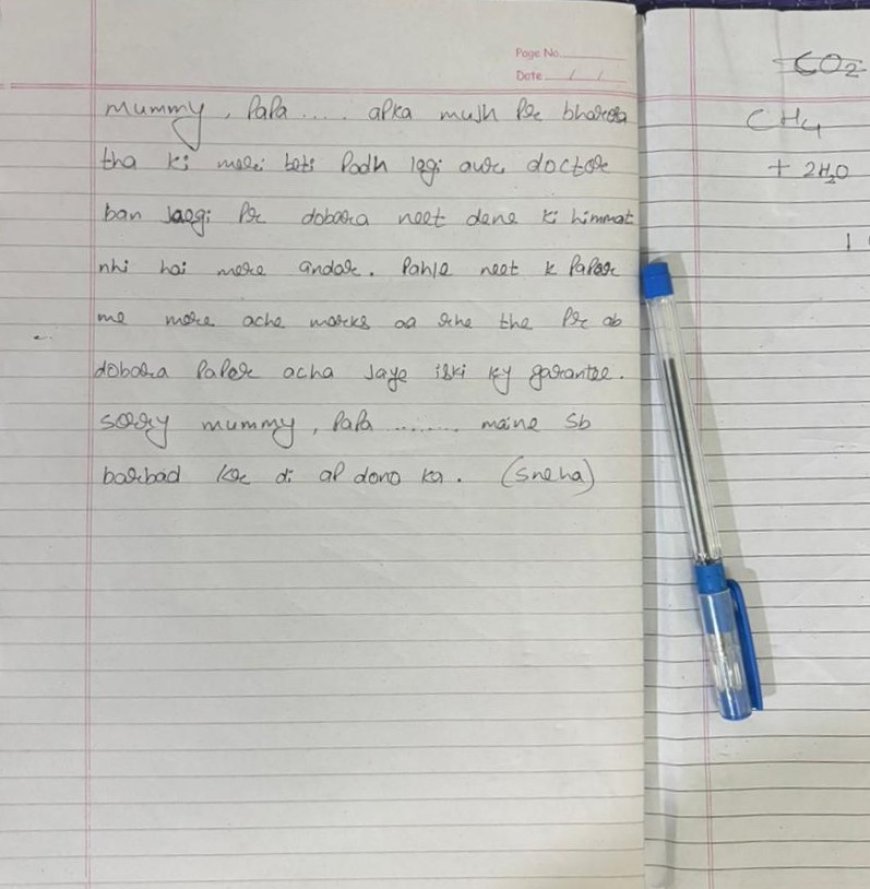 Page No.
Date / /
Mummy, Papa .... apka mujh per bharosa
tha ki meri beti Padh legi aur doctor
ban jaegi Per dobara neet dene ki himmat
nhi hai mere andar. Pahle neet k Paper
me mere ache marks aa rhe the Per ab
dobara Paper acha jaye iski ky garantee.
sorry mummy, Papa ........ maine Sb
barbad kr di ap dono ka. (Sneha)
CO2
CH4
+ 2H2O